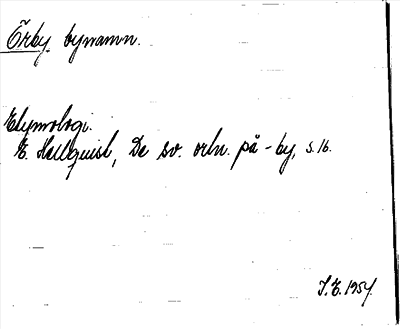 Örby. bynamn.
Etymologi.
E. Hellquist, De sv. ortn. på -by, s. 16.
I.E. 1954.